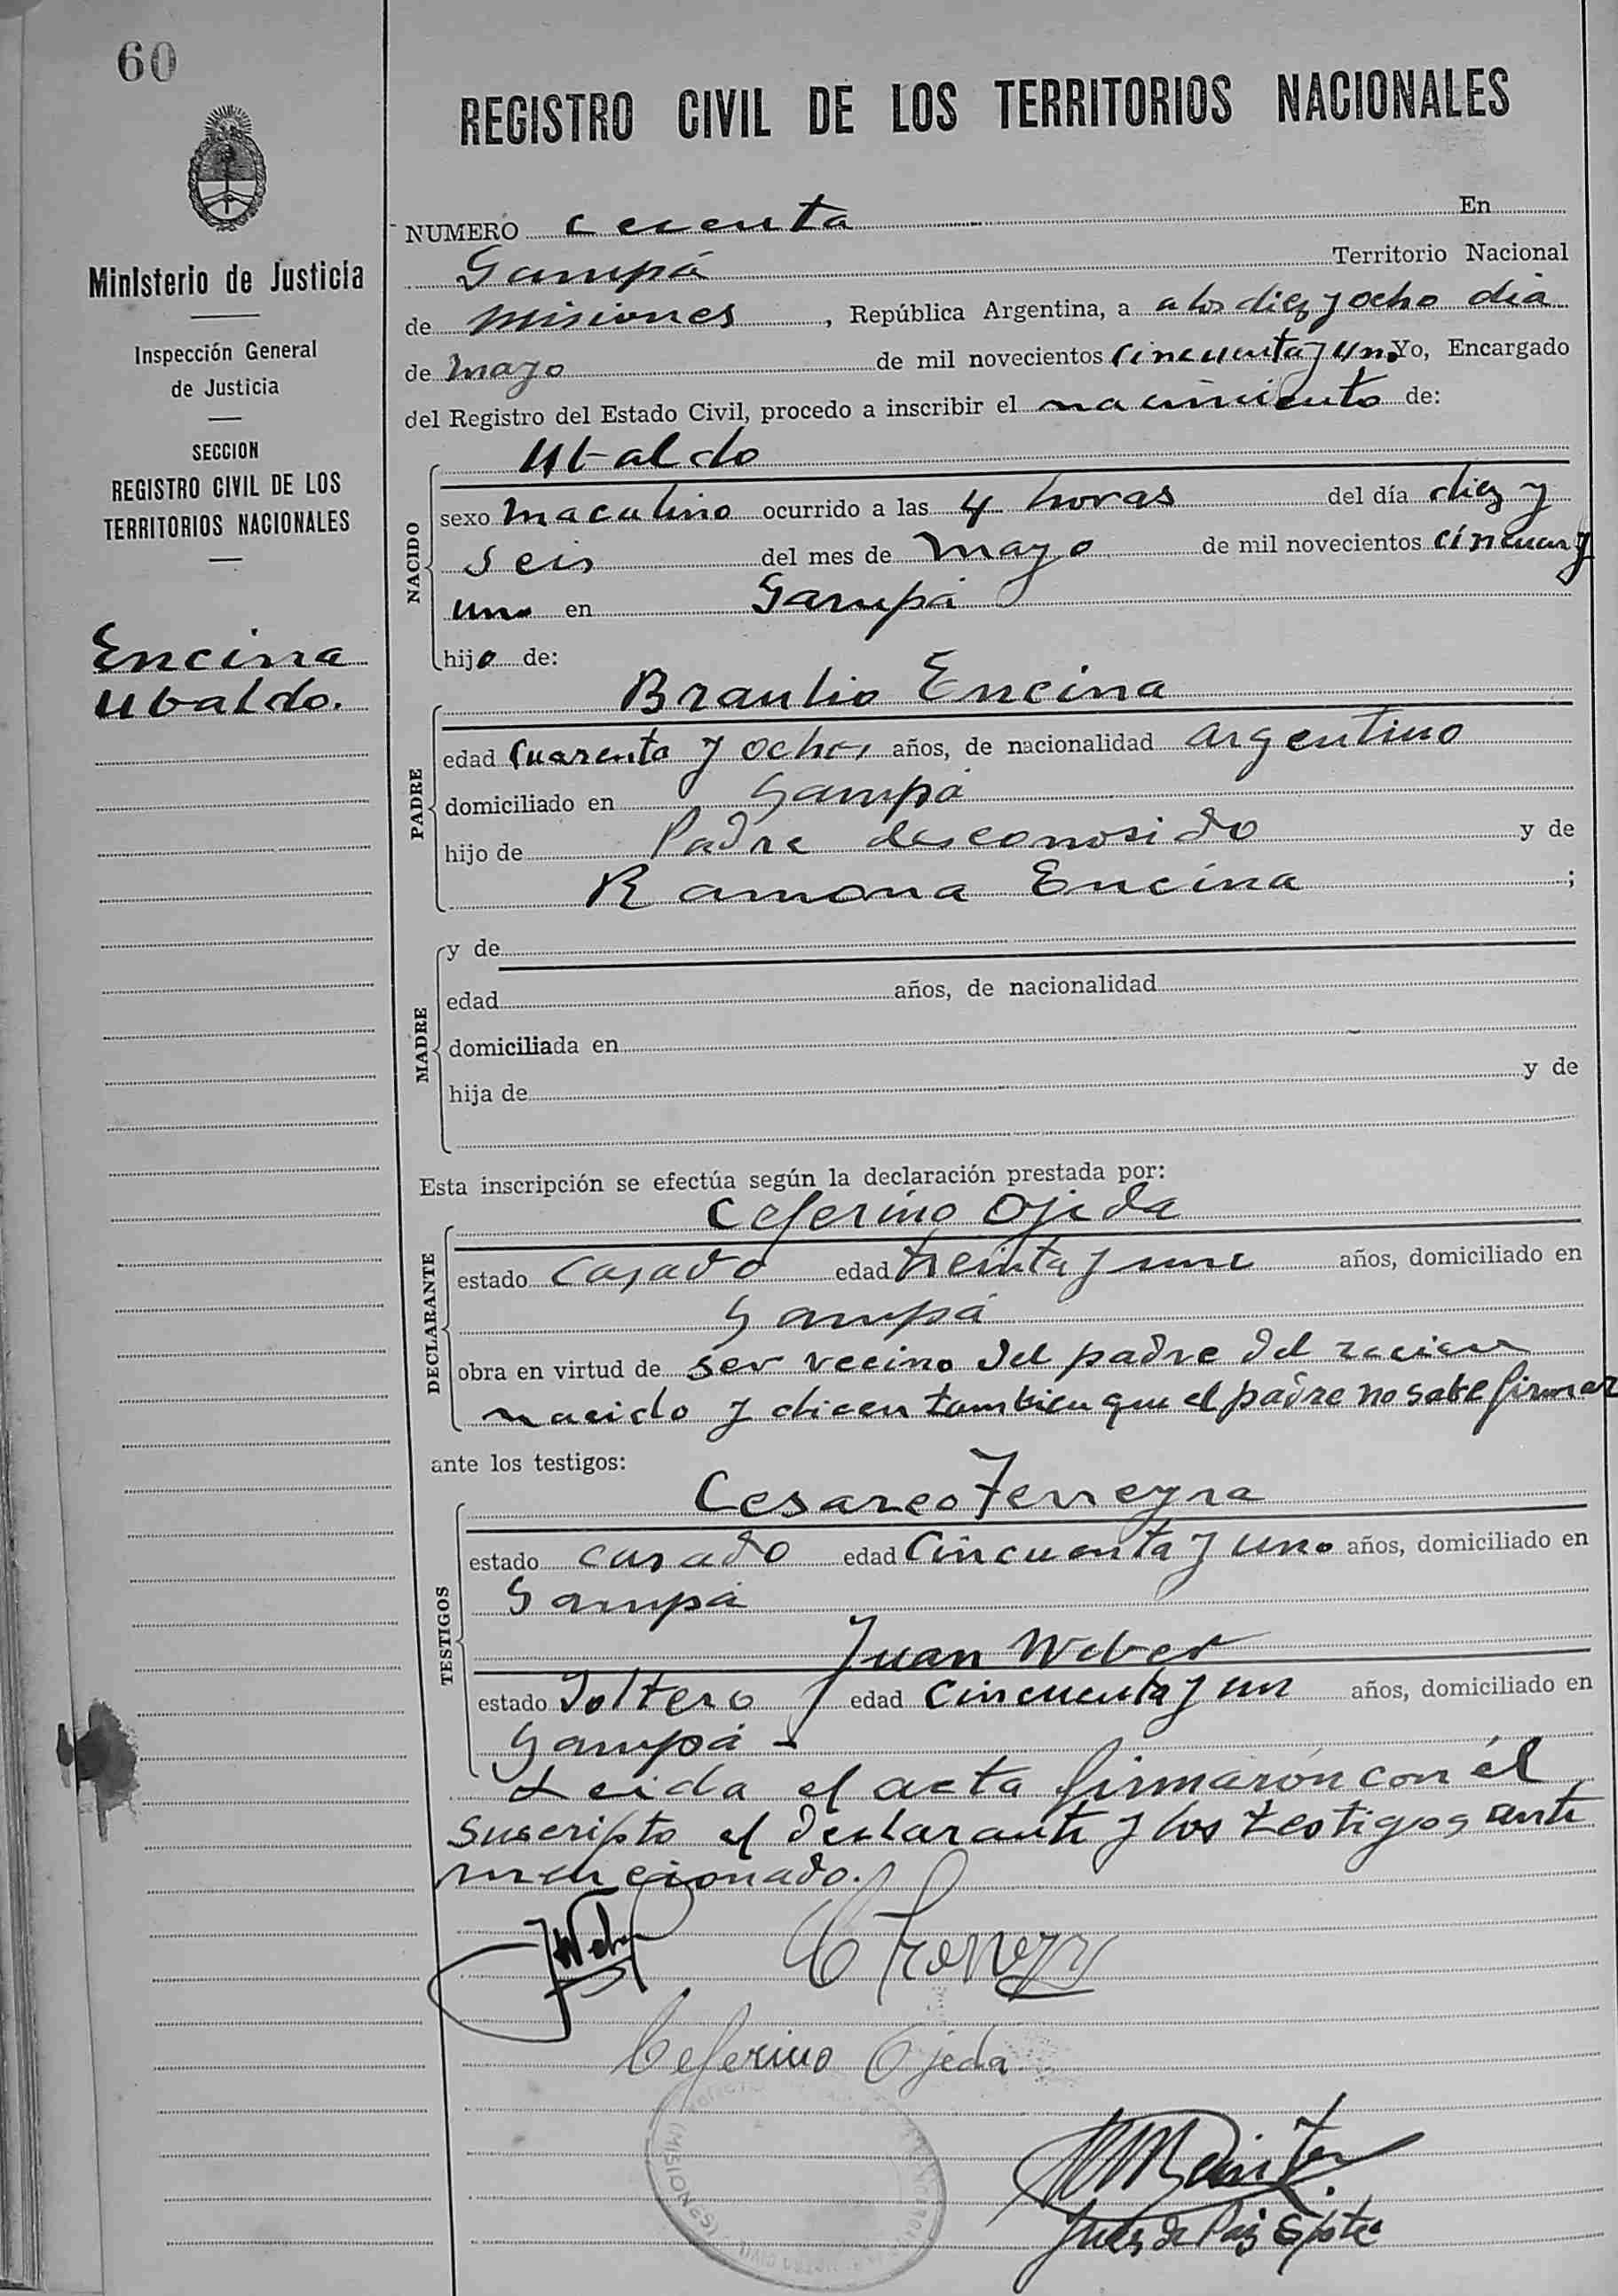 60
REGISTRO CIVIL DE LOS TERRITORIOS NACIONALES
Ministerio de Justicia
Inspección General
de Justicia
SECCION
REGISTRO CIVIL DE LOS
TERRITORIOS NACIONALES
Encina
Ubaldo.
NUMERO En
Garupá Territorio Nacional
de Misiones, República Argentina, a a los diez y ocho dia
de mayo de mil novecientos cincuenta y uno Yo, Encargado
del Registro del Estado Civil, procedo a inscribir el nacimiento de:
Ubaldo
NACIDO
sexo maculino ocurrido a las 4 horas del día diez y
seis del mes de mayo de mil novecientos cincuen y
uno en Garupá
hijo de:
Braulio Encina
PADRE
edad cuarenta y ocho años, de nacionalidad argentino
domiciliado en Garupá
hijo de Padre desconosido y de
Ramona Encina ;
MADRE
y de
edad años, de nacionalidad
domiciliada en
hija de y de
Esta inscripción se efectúa según la declaración prestada por:
Ceferino Ojeda
DECLARANTE
estado Casado edad treinta y uno años, domiciliado en
Garupá
obra en virtud de ser vecino del padre del recien
nacido y dicen tambien que el padre no sabe firmar
ante los testigos:
Cesareo Ferreyra
TESTIGOS
estado casado edad Cincuenta y uno años, domiciliado en
Garupá
Juan Weber
estado Soltero edad cincuenta y un años, domiciliado en
Garupá -
Leida el acta firmarón con él
suscripto el declarante y los testigos ante
mencionado.
JWeber
Ceferino Ojeda
(MISIONES)
Juez de Paz Splte